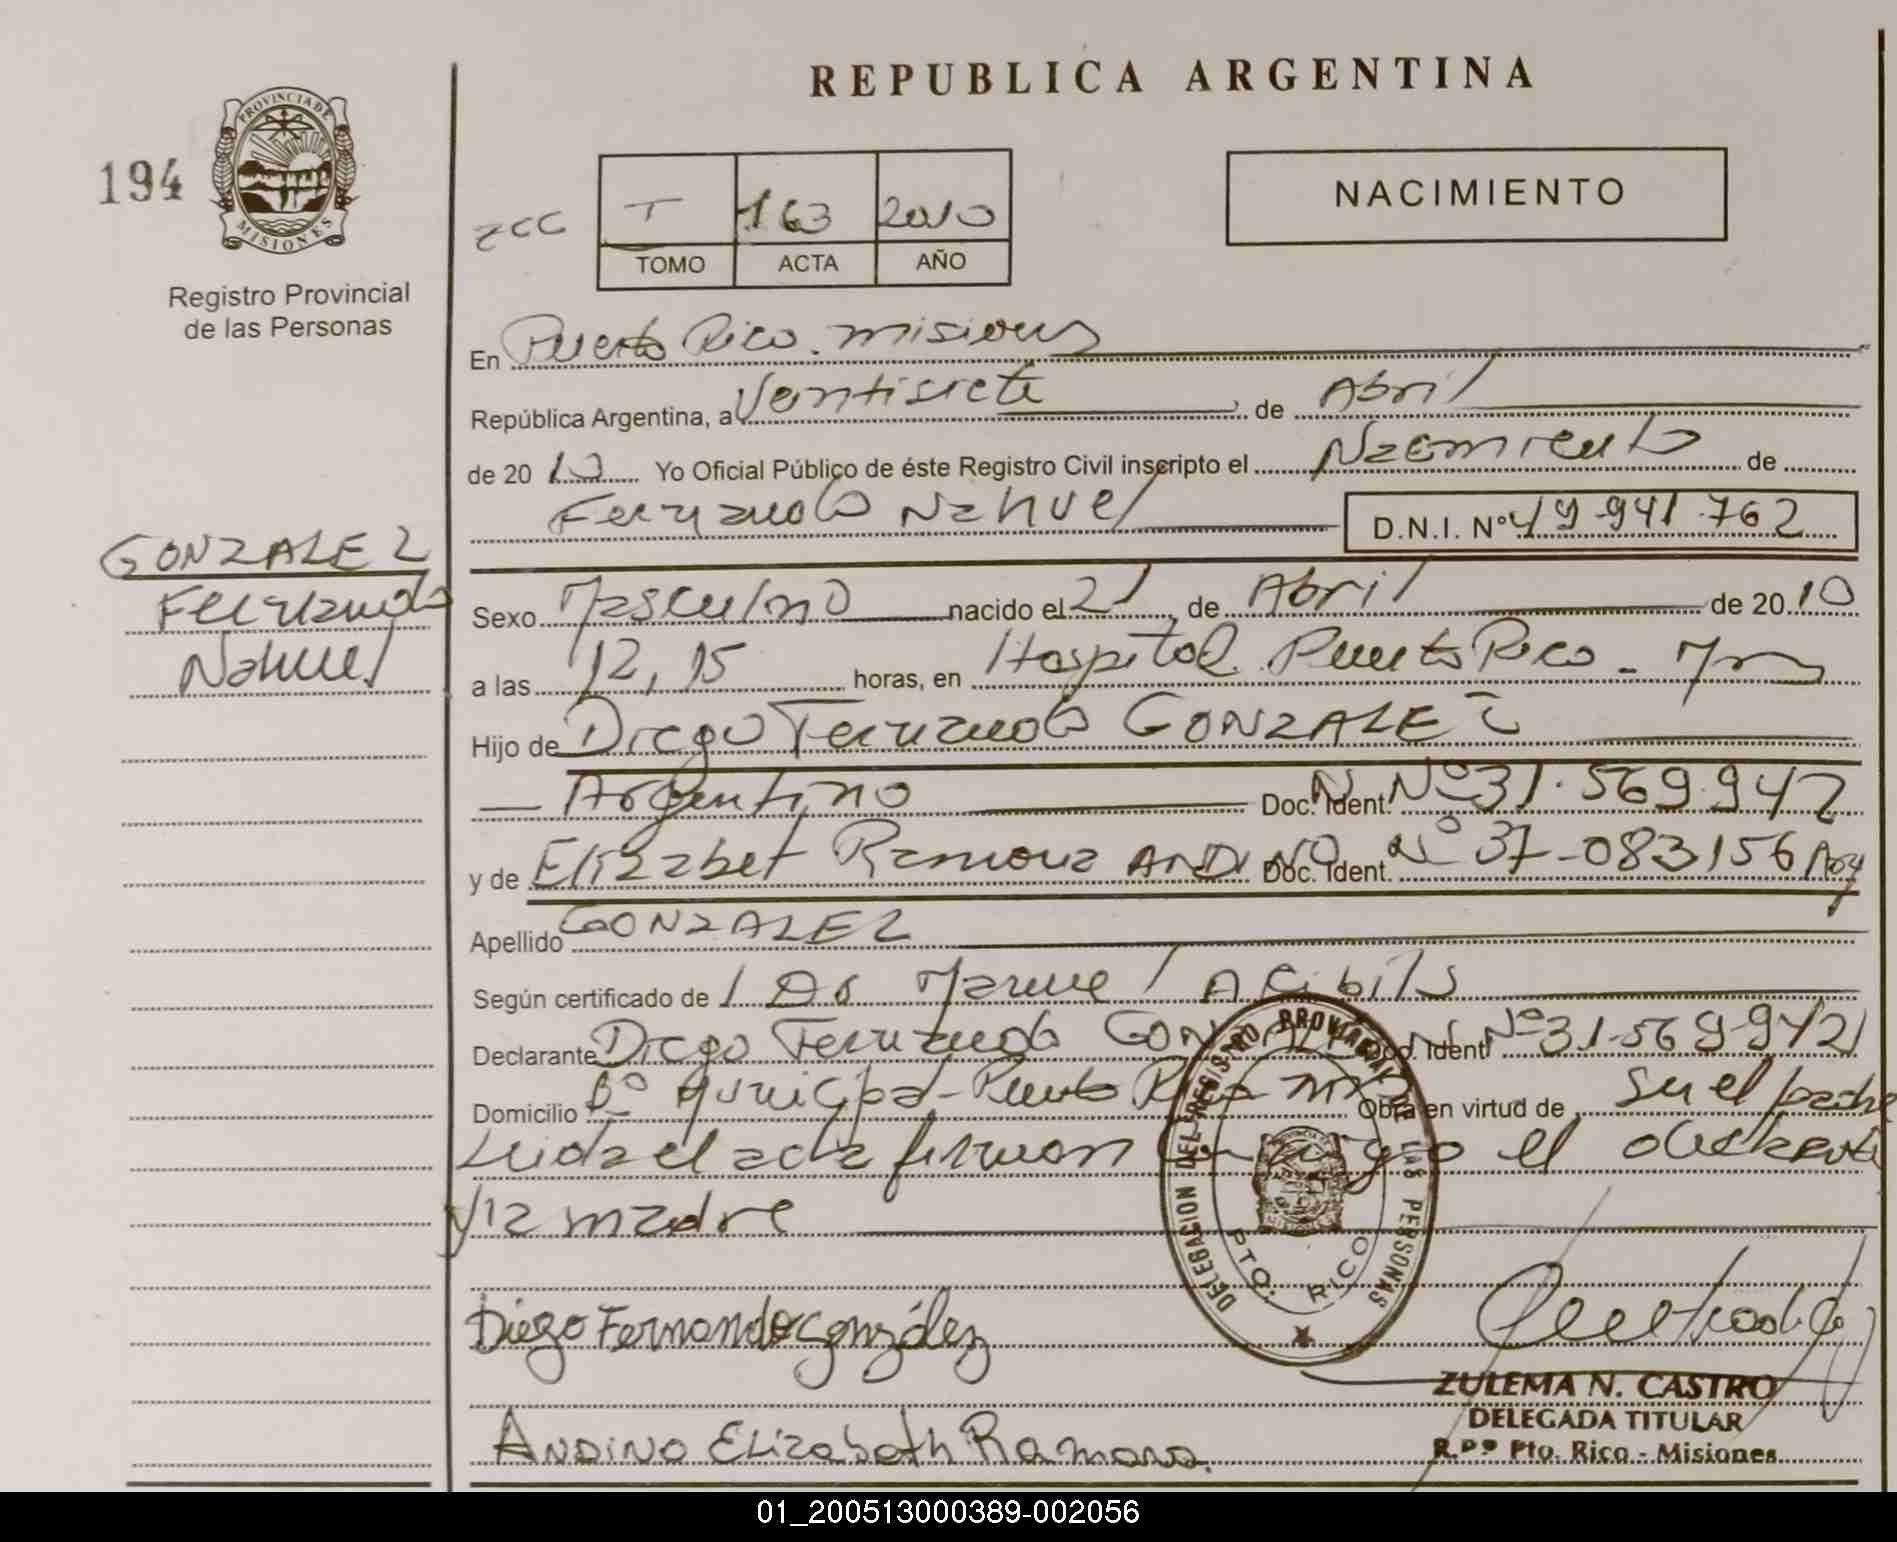 REPUBLICA ARGENTINA
PROVINCIA DE
MISIONES
194
Registro Provincial
de las Personas
NACIMIENTO
T 163 2010
TOMO ACTA AÑO
En Puerto Rico. Misiones
República Argentina, a Ventisiete de Abril
de 20 10 Yo Oficial Público de éste Registro Civil inscripto el Nacimiento de
Fernando Nahuel D.N.I. Nº 49.941.762
GONZALEZ
Fernando
Nahuel
Sexo Masculino nacido el 21 de Abril de 20 10
a las 12,15 horas, en Hospital Puerto Rico - Mns
Hijo de Diego Fernando GONZALEZ
Argentino Doc. Ident. Nº 31.569.942
y de Elizabet Ramona ANDINO Doc. Ident. Nº 37-083156 Arg
Apellido GONZALEZ
Según certificado de Dr Manuel
Declarante Diego Fernando Doc. Ident. Nº 31-569-942
Domicilio Bº Municipal - Puerto Rico Obra en virtud de Su el padre
Leida el acta firman conmigo el declarante
y la madre
DELEGACION DEL REGISTRO PROVINCIAL DE LAS PERSONAS
PTO. RICO
Diego Fernando González
ZULEMA N. CASTRO
DELEGADA TITULAR
R.Pº Pto. Rico - Misiones
Andino Elizabeth Ramona.
01_200513000389-002056